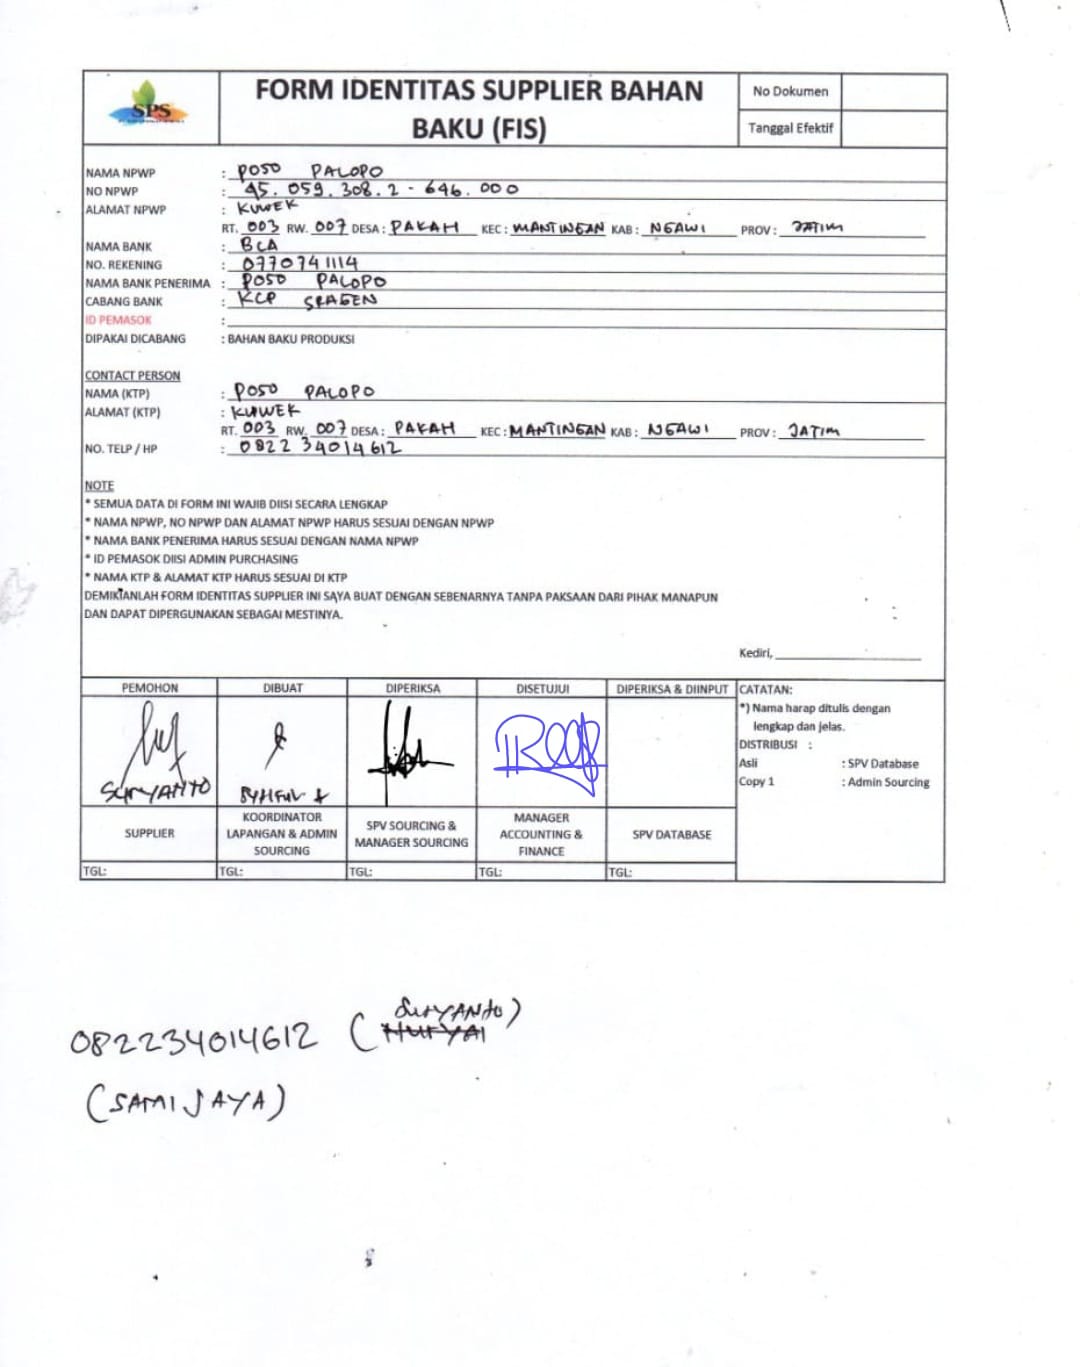 SPS
FORM IDENTITAS SUPPLIER BAHAN
BAKU (FIS)
No Dokumen
Tanggal Efektif
NAMA NPWP : POSO PALOPO
NO NPWP : 95.059.308.2-646.000
ALAMAT NPWP : KUWEK
RT. 003 RW. 007 DESA : PAKAH KEC : MANTINGAN KAB : NGAWI PROV : JATIM
NAMA BANK : BCA
NO. REKENING : 0770741114
NAMA BANK PENERIMA : POSO PALOPO
CABANG BANK : KCP SRAGEN
ID PEMASOK :
DIPAKAI DICABANG : BAHAN BAKU PRODUKSI
CONTACT PERSON
NAMA (KTP) : POSO PALOPO
ALAMAT (KTP) : KUWEK
RT. 003 RW. 007 DESA : PAKAH KEC : MANTINGAN KAB : NGAWI PROV : JATIM
NO. TELP / HP : 0822 34014612
NOTE
* SEMUA DATA DI FORM INI WAJIB DIISI SECARA LENGKAP
* NAMA NPWP, NO NPWP DAN ALAMAT NPWP HARUS SESUAI DENGAN NPWP
* NAMA BANK PENERIMA HARUS SESUAI DENGAN NAMA NPWP
* ID PEMASOK DIISI ADMIN PURCHASING
* NAMA KTP & ALAMAT KTP HARUS SESUAI DI KTP
DEMIKIANLAH FORM IDENTITAS SUPPLIER INI SAYA BUAT DENGAN SEBENARNYA TANPA PAKSAAN DARI PIHAK MANAPUN
DAN DAPAT DIPERGUNAKAN SEBAGAI MESTINYA.
Kediri,
PEMOHON DIBUAT DIPERIKSA DISETUJUI DIPERIKSA & DIINPUT CATATAN:
*) Nama harap ditulis dengan
lengkap dan jelas.
DISTRIBUSI :
Asli : SPV Database
Copy 1 : Admin Sourcing
SURYANTO
SUPPLIER
KOORDINATOR
LAPANGAN & ADMIN
SOURCING
SPV SOURCING &
MANAGER SOURCING
MANAGER
ACCOUNTING &
FINANCE
SPV DATABASE
TGL: TGL: TGL: TGL: TGL:
082234014612 (SURYANTO)
(SAMIJAYA)